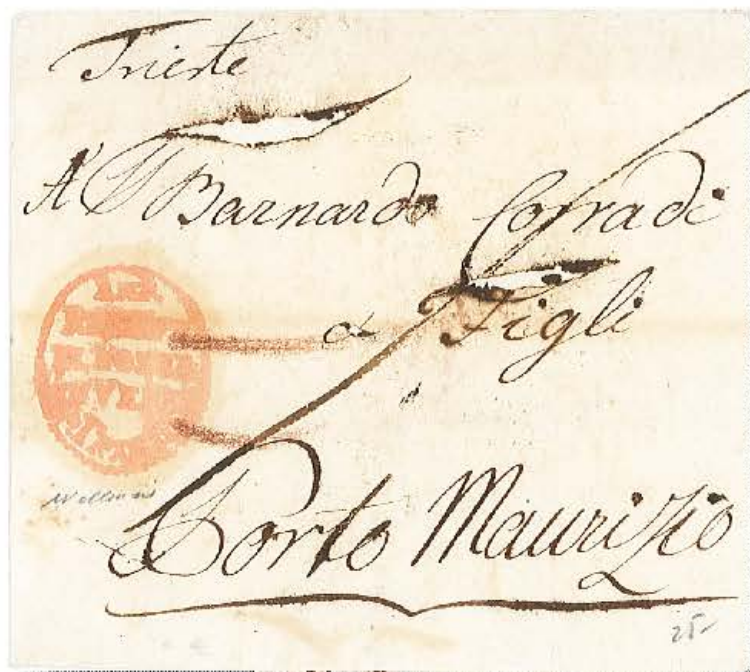 Trieste
A Barnardo Corradi
& Figli
Porto Maurizio
25